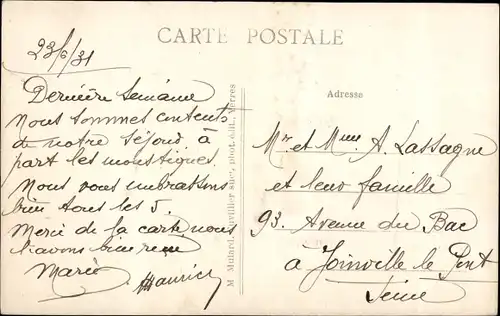 CARTE POSTALE
23/6/31
Dernière Semaine
Nous sommes contents
de notre séjour à
part les moustiques.
Nous vous embrassons
bien tous les 5.
Merci de la carte nous
l'avons bien reçu
Marie
Maurice
M. Mulard, succr, phot. édit., Yerres
Adresse
Mr et Mme A. Lassagne
et leur famille
93. Avenue du Bac
à Joinville le Pont
Seine